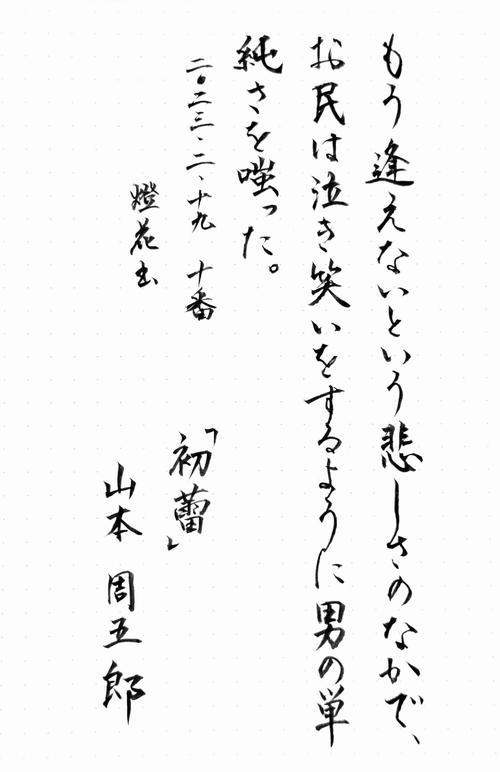 もう逢えないという悲しさのなかで、
お民は泣き笑いをするように男の単
純さを嗤った。
二〇二三、二、十九 十番
燈花書
「初蕾」
山本 周五郎